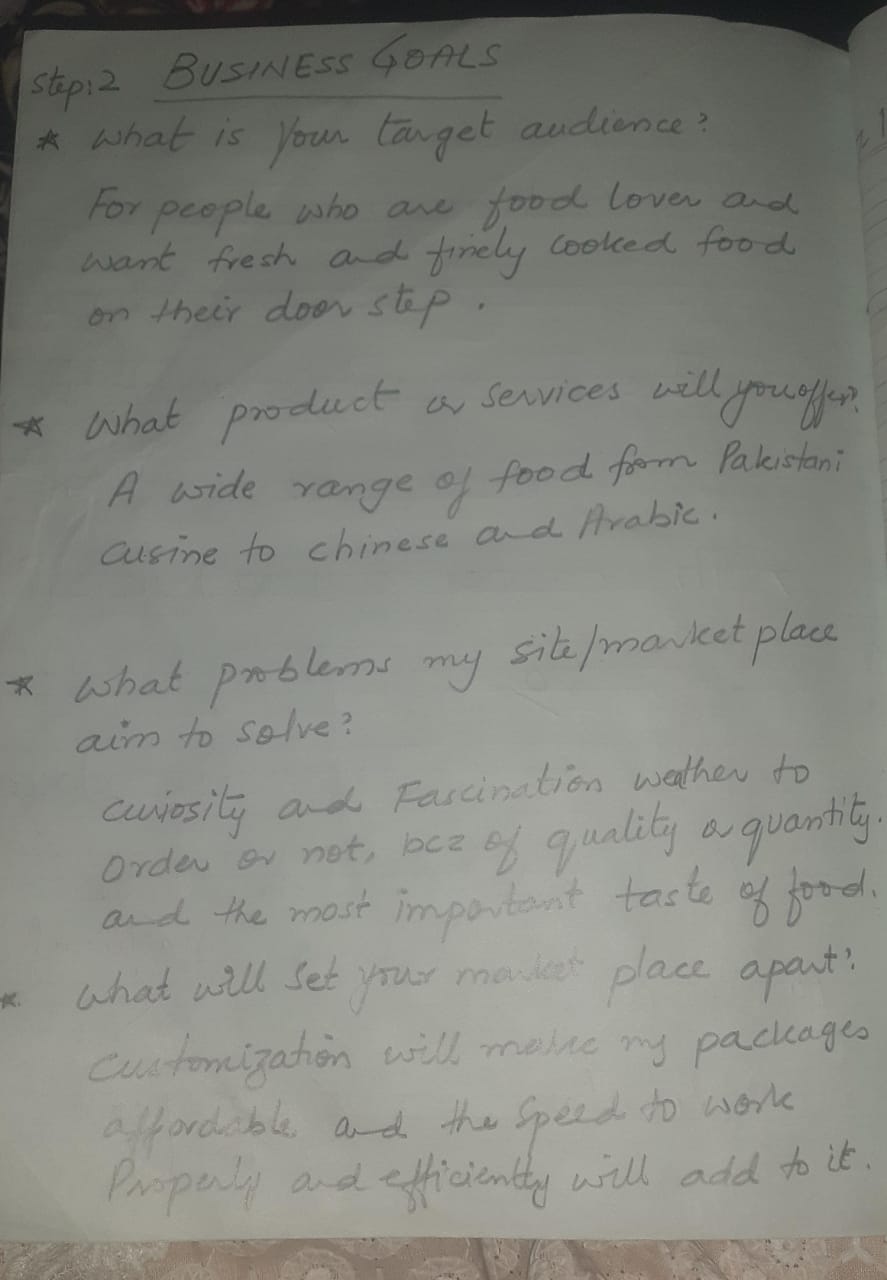 Step:2 BUSINESS GOALS
* What is your target audience?
For people who are food lover and
want fresh and finely cooked food
on their door step.
* What product or services will you offer?
A wide range of food from Pakistani
cusine to chinese and Arabic.
* What problems my site/market place
aim to solve?
Curiosity and Fascination weather to
order or not, bcz of quality or quantity.
and the most important taste of food.
* What will set your market place apart?
Customization will make my packages
affordable and the Speed to work
Properly and efficiently will add to it.